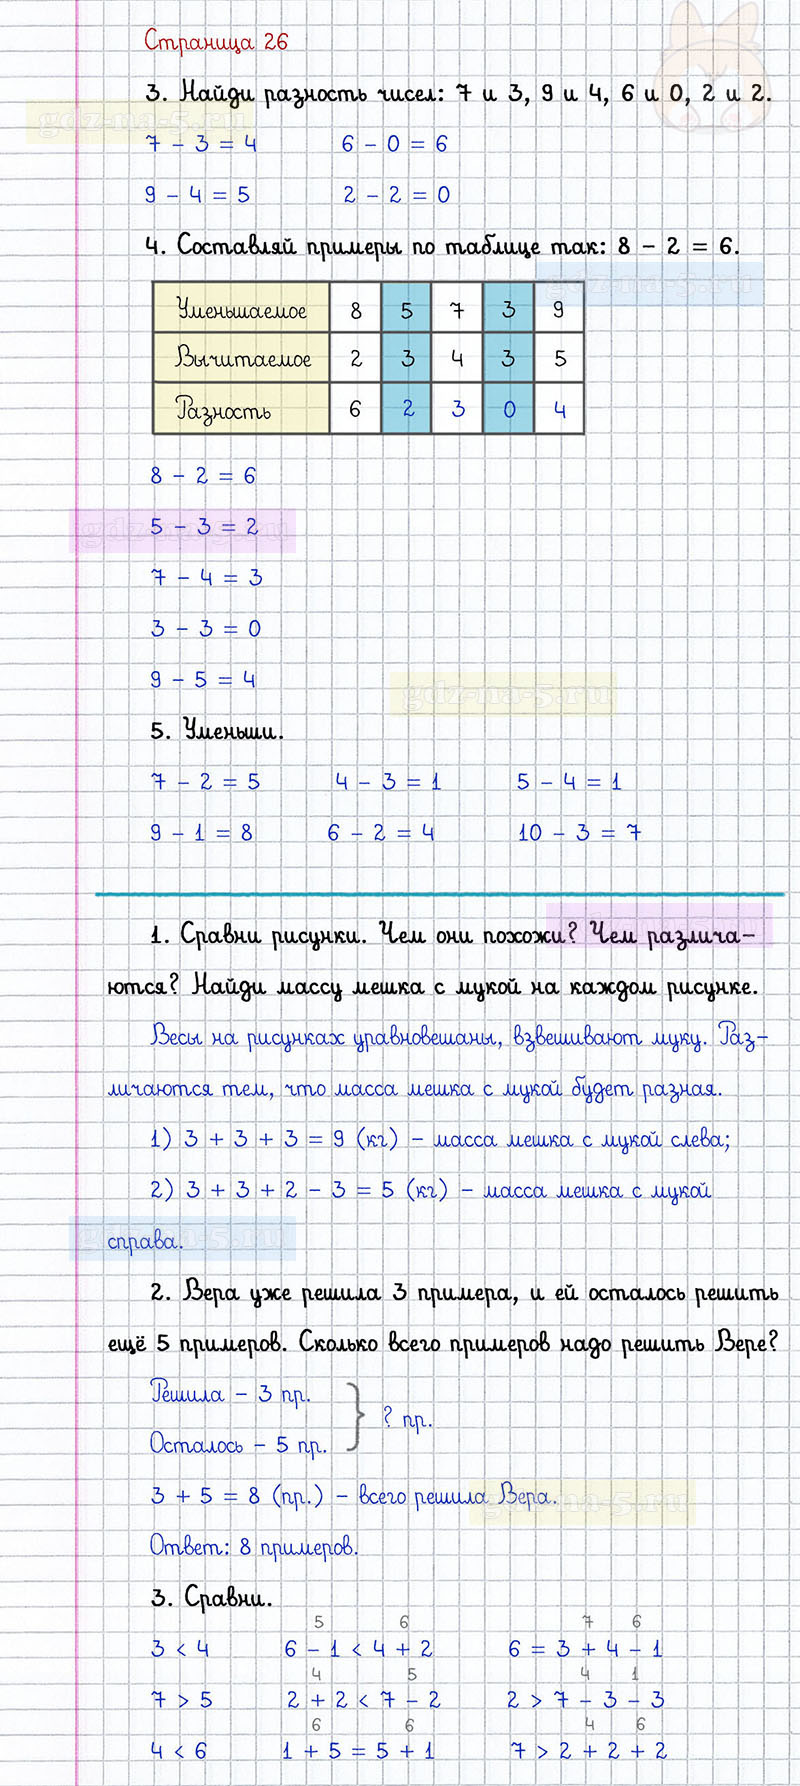 Страница 26
3. Найди разность чисел: 7 и 3, 9 и 4, 6 и 0, 2 и 2.
gdz-na-5.ru
7 - 3 = 4 6 - 0 = 6
9 - 4 = 5 2 - 2 = 0
4. Составляй примеры по таблице так: 8 - 2 = 6.
gdz-na-5.ru
Уменьшаемое 8 5 7 3 9
Вычитаемое 2 3 4 3 5
Разность 6 2 3 0 4
8 - 2 = 6
5 - 3 = 2
gdz-na-5.ru
7 - 4 = 3
3 - 3 = 0
9 - 5 = 4
gdz-na-5.ru
5. Уменьши.
7 - 2 = 5 4 - 3 = 1 5 - 4 = 1
9 - 1 = 8 6 - 2 = 4 10 - 3 = 7
1. Сравни рисунки. Чем они похожи? Чем различа-
ются? Найди массу мешка с мукой на каждом рисунке.
Весы на рисунках уравновешаны, взвешивают муку. Раз-
личаются тем, что масса мешка с мукой будет разная.
1) 3 + 3 + 3 = 9 (кг) - масса мешка с мукой слева;
2) 3 + 3 + 2 - 3 = 5 (кг) - масса мешка с мукой
справа.
gdz-na-5.ru
2. Вера уже решила 3 примера, и ей осталось решить
ещё 5 примеров. Сколько всего примеров надо решить Вере?
Решила - 3 пр.
? пр.
Осталось - 5 пр.
3 + 5 = 8 (пр.) - всего решила Вера.
gdz-na-5.ru
Ответ: 8 примеров.
3. Сравни.
5 6 7 6
3 < 4 6 - 1 < 4 + 2 6 = 3 + 4 - 1
4 5 4 1
7 > 5 2 + 2 < 7 - 2 2 > 7 - 3 - 3
6 6 4 6
4 < 6 1 + 5 = 5 + 1 7 > 2 + 2 + 2